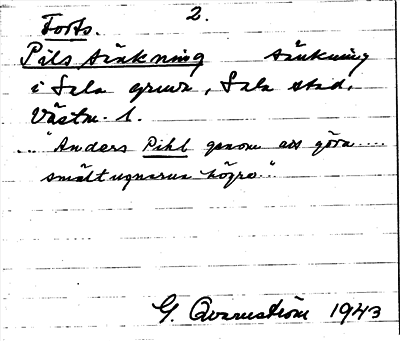 2.
Forts.
Pils sänkning sänkning
i Sala gruva, Sala stad,
Västm. l.
..."Anders Pihl genom att göra ....
smältugnarna högre".
G. Qvarnström 1943